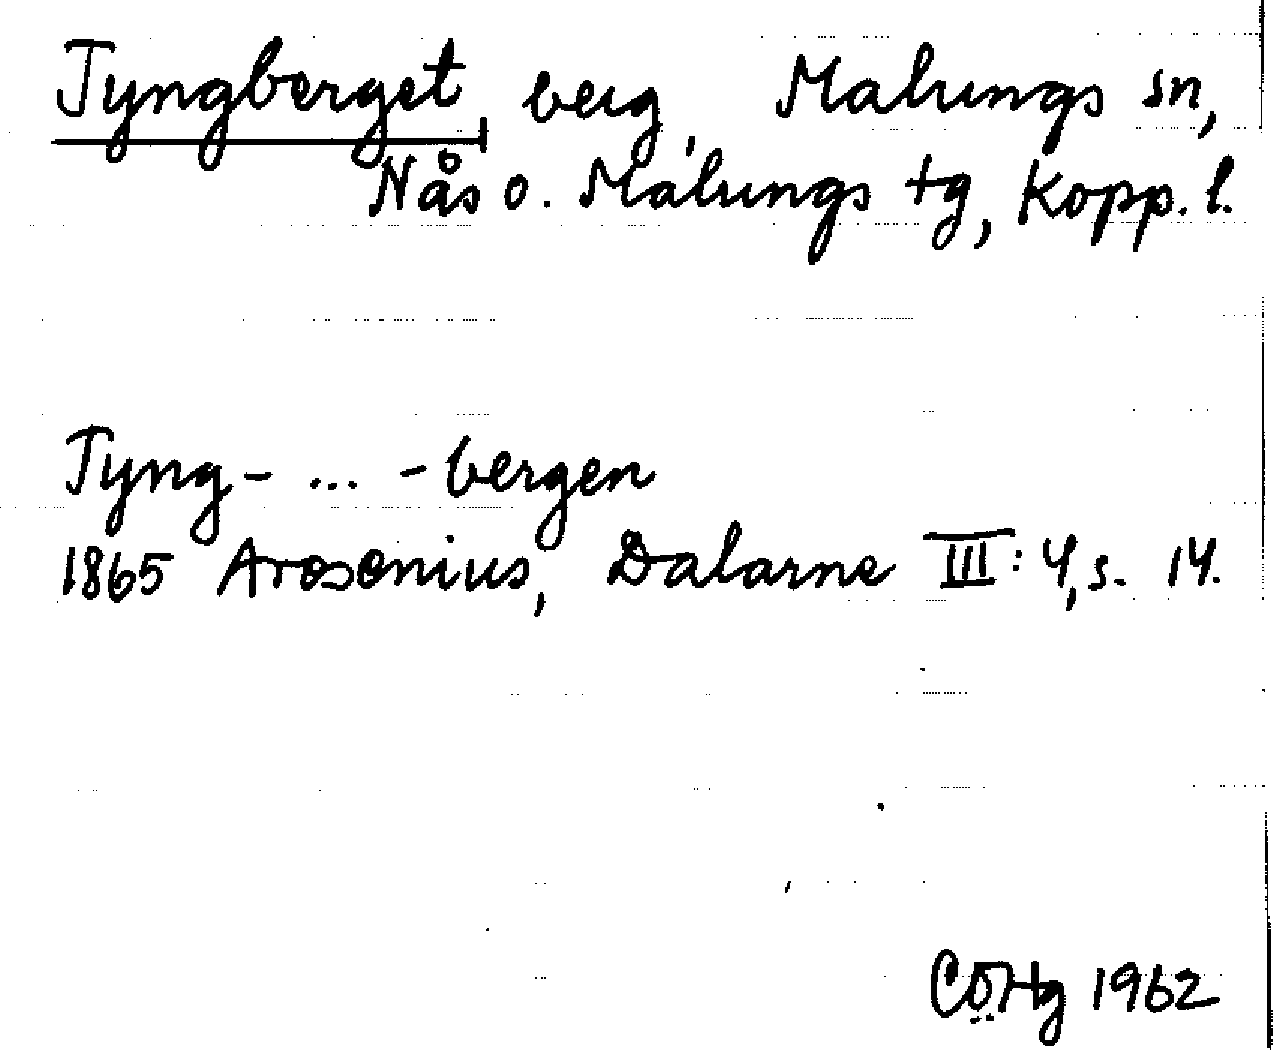 Tyngberget berg, Malungs sn,
Nås o. Malungs tg, Kopp. l.
Tyng- ... -bergen
1865 Arosenius, Dalarne III: 4, s. 14.
1962